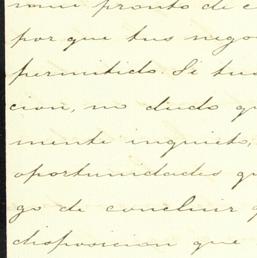 pronto de c
por que tus nego
permitido. Si tus
cion, no dudo qu
mente inquieto,
oportunidades qu
go de concluir q
disposicion que